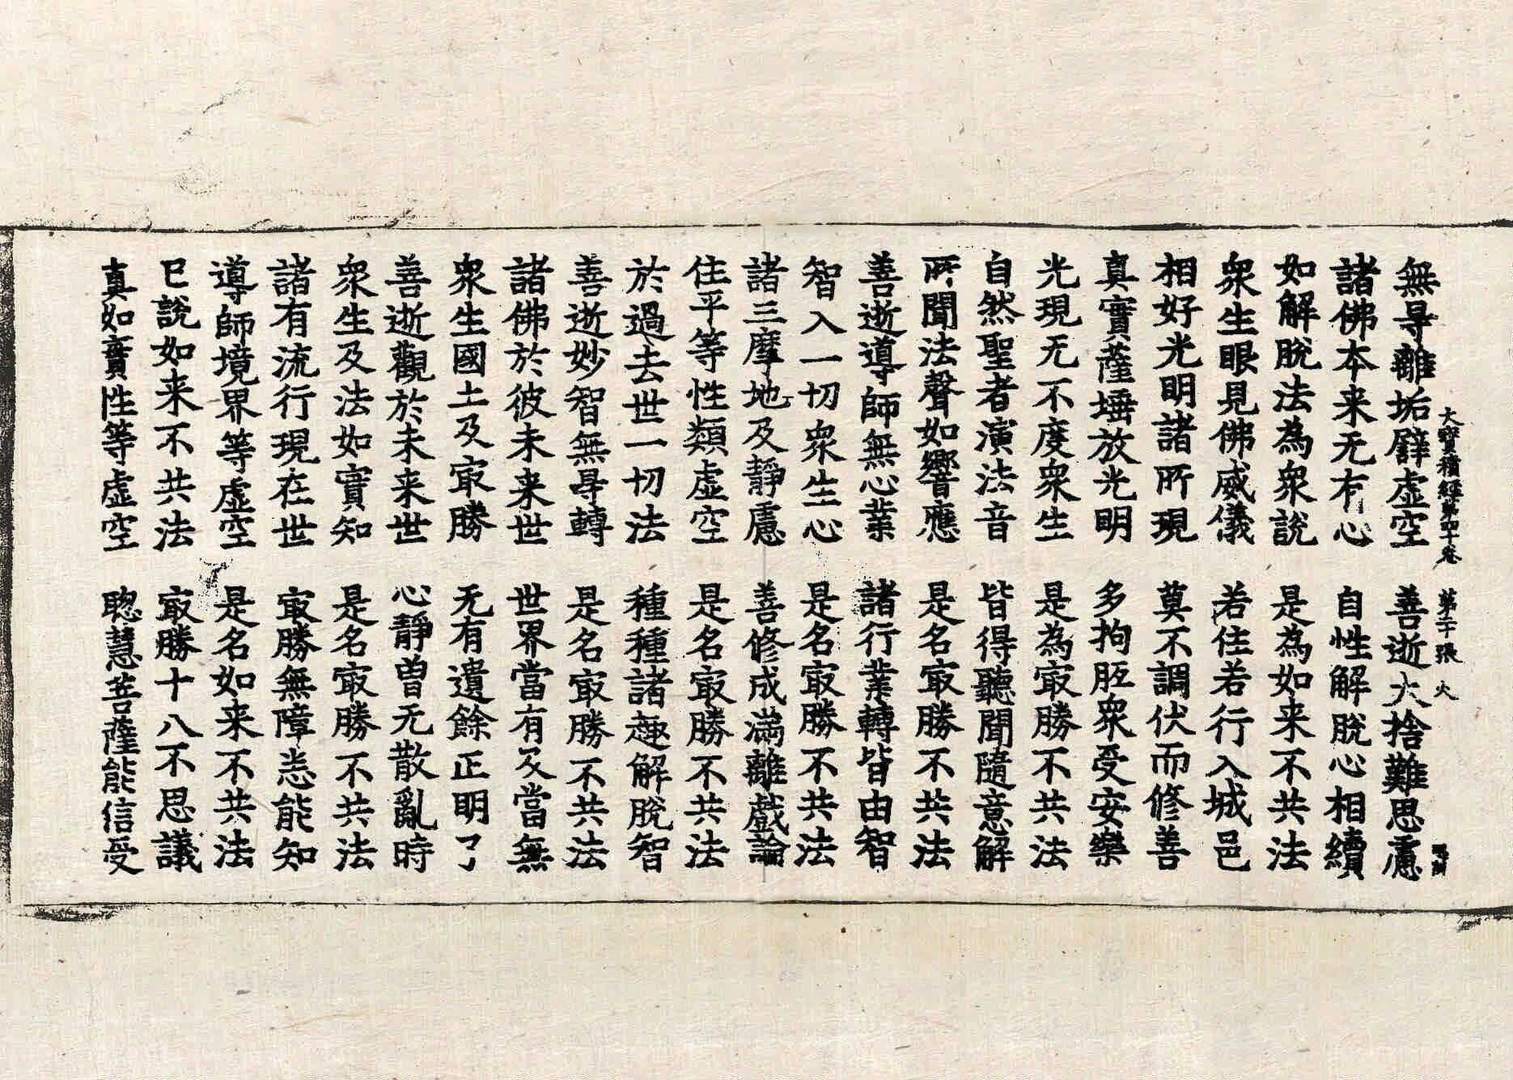 大寶積經第四十卷 第二十張 火
無㝵離垢辟虛空 善逝大捨難思慮
諸佛本来无有心 自性解脫心相續
如解脫法為衆說 是為如来不共法
衆生眼見佛威儀 若住若行入城邑
相好光明諸所現 莫不調伏而修善
真實薩埵放光明 多拘胝衆受安樂
光現无不度衆生 是為㝡勝不共法
自然聖者演法音 皆得聽聞隨意解
所聞法聲如響應 是名㝡勝不共法
善逝導師無心業 諸行業轉皆由智
智入一切衆生心 是名㝡勝不共法
諸三摩地及靜慮 善修成滿離戲論
住平等性類虛空 是名㝡勝不共法
於過去世一切法 種種諸趣解脫智
善逝妙智無㝵轉 是名㝡勝不共法
諸佛於彼未来世 世界當有及當無
衆生國土及㝡勝 无有遺餘正明了
善逝觀於未来世 心靜曽无散亂時
衆生及法如實知 是名㝡勝不共法
諸有流行現在世 㝡勝無障悉能知
導師境界等虛空 是名如来不共法
已說如来不共法 㝡勝十八不思議
真如實性等虛空 聰慧菩薩能信受